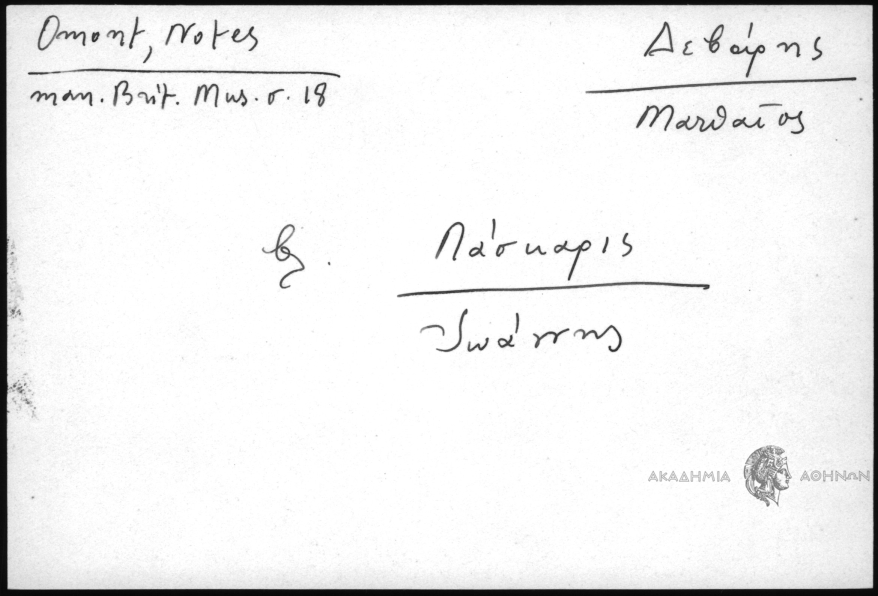 Omont, Notes
man. Brit. Mus. σ. 18
Δεβάρης
Ματθαῖος
βλ. Λάσκαρις
Ἰωάννης
ΑΚΑΔΗΜΙΑ ΑΘΗΝΩΝ